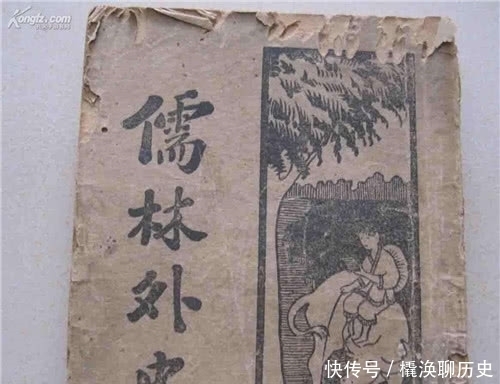 Kongfz.com
儒林外史
快传号／橇涣聊历史